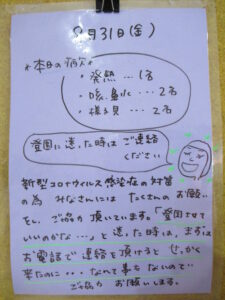 8月31日(金)
*本日の病欠*
・発熱…1名
・咳・鼻水…2名
・様子見…2名
登園に迷った時はご連絡
ください
新型コロナウイルス感染症の対策
の為 みなさんには たくさんの お願い
をし、ご協力 頂いています。「登園させて
いいのかな…」と 迷った時は、まずは
お電話で 連絡を 頂けると せっかく
来たのに・・・なんて事も ないので
ご協力 お願いします。